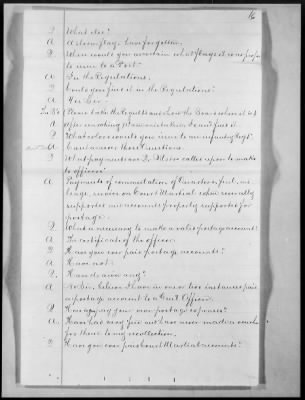 16
Q What else?
A A storm flag. I have forgotten.
Q When would you ascertain what flags it was proper
to issue to a Post?
A In the Regulations.
Q Could you find it in the Regulations?
A Yes Sir.
Please take the Regulations and show the Board where it is
A After making it now I can't find it.
Q What colors would you issue to an infantry Regt.
A Cannot answer those Questions.
Q What payments are Q. Masters called upon to make
to officers?
A Payments of commutation of Quarters & fuel, mi-
leage, services on Court Martial when
supported and accounts properly supported for
postage.
Q What is necessary to make a valid postage account?
A The certificate of the officer.
Q Have you ever paid postage accounts?
A I have not.
Q Have drawn any?
A No Sir, I believe I have in one or two instances paid
a postage account to a Court Officer.
Q How do you pay your own postage expenses?
A I have had very few and have never made a voucher
for them to my recollection.
Q Have you ever paid Court Martial accounts?